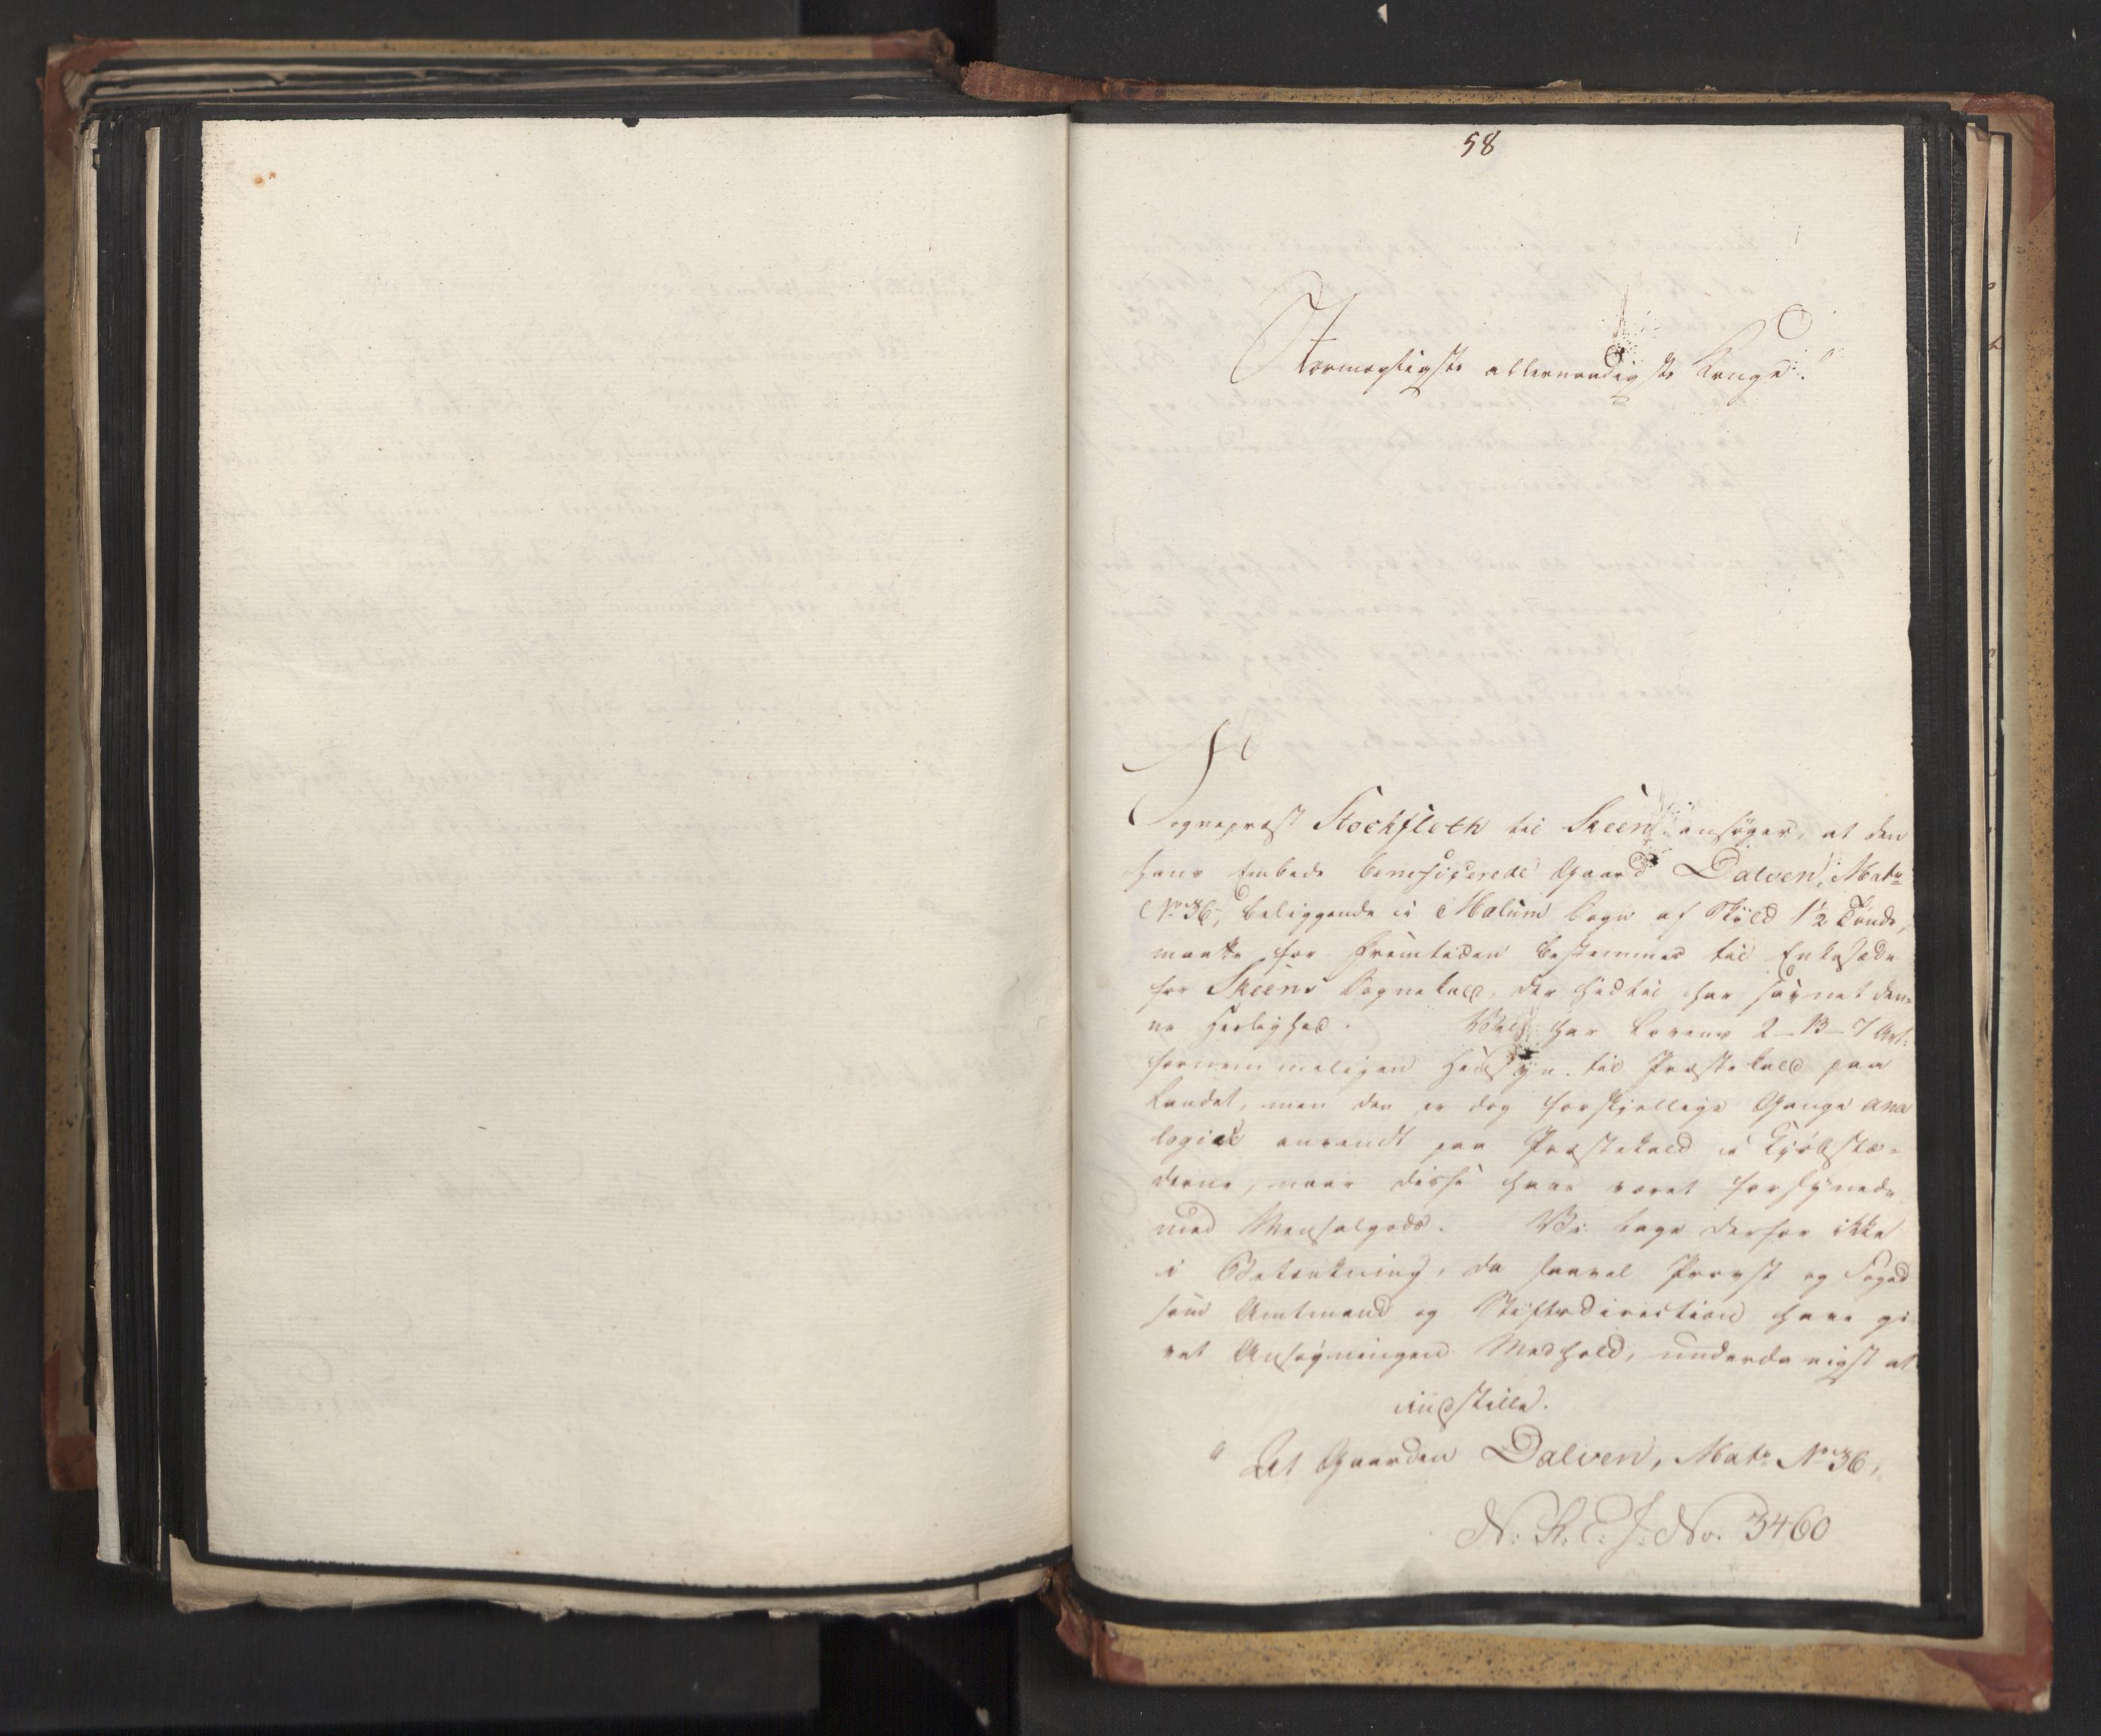 58
Stormægtigste allernaadigste Konge!
Sognepræst Stockfleth til Skeen ansøger, at den
hans Embede beneficerede Gaard Dalven, Matr
No 36, beliggende i Mælum Sogn af Skyld 1½ Tønde,
maatte for Fremtiden bestemmes til Enkesæde
for Skeens Sognekald, der hidtil har savnet den-
ne Herlighed. Vel har Lovens 2-13-7 Art:
fornemmeligen Hensyn til Præstekald paa
Landet, men den er dog forskjellige Gange ana
logice anvendt paa Præstekald i Kjøbstæ-
derne, naar disse have været forsynede
med Mensalgods. Vi tage derfor ikke
i Betænkning, da saavel Provst og Foged
som Amtmand og Stiftsdirection have gi
vet Ansøgningen Medhold, underdanigst at
indstille.
" At Gaarden Dalven, Matr No 36,
N: R. E. J. No. 3460